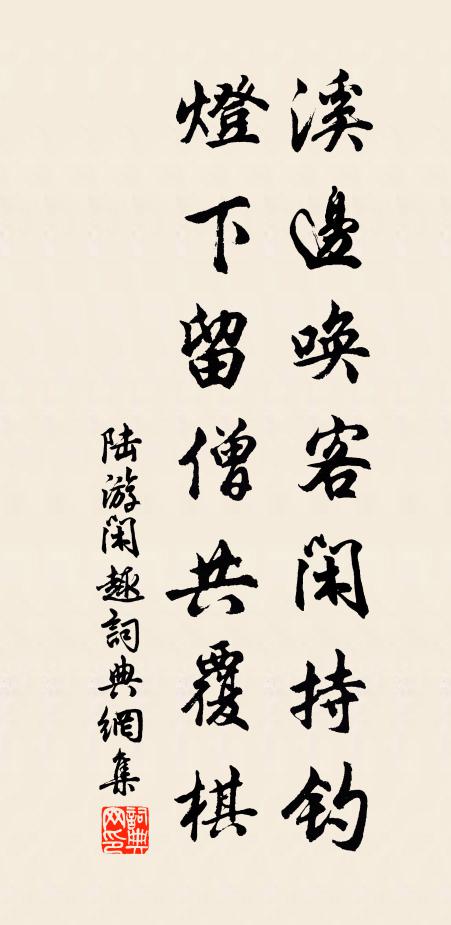 溪邊喚客閑持釣
燈下留僧共覆棋
陆游閑趣詞典網集
詞典网印